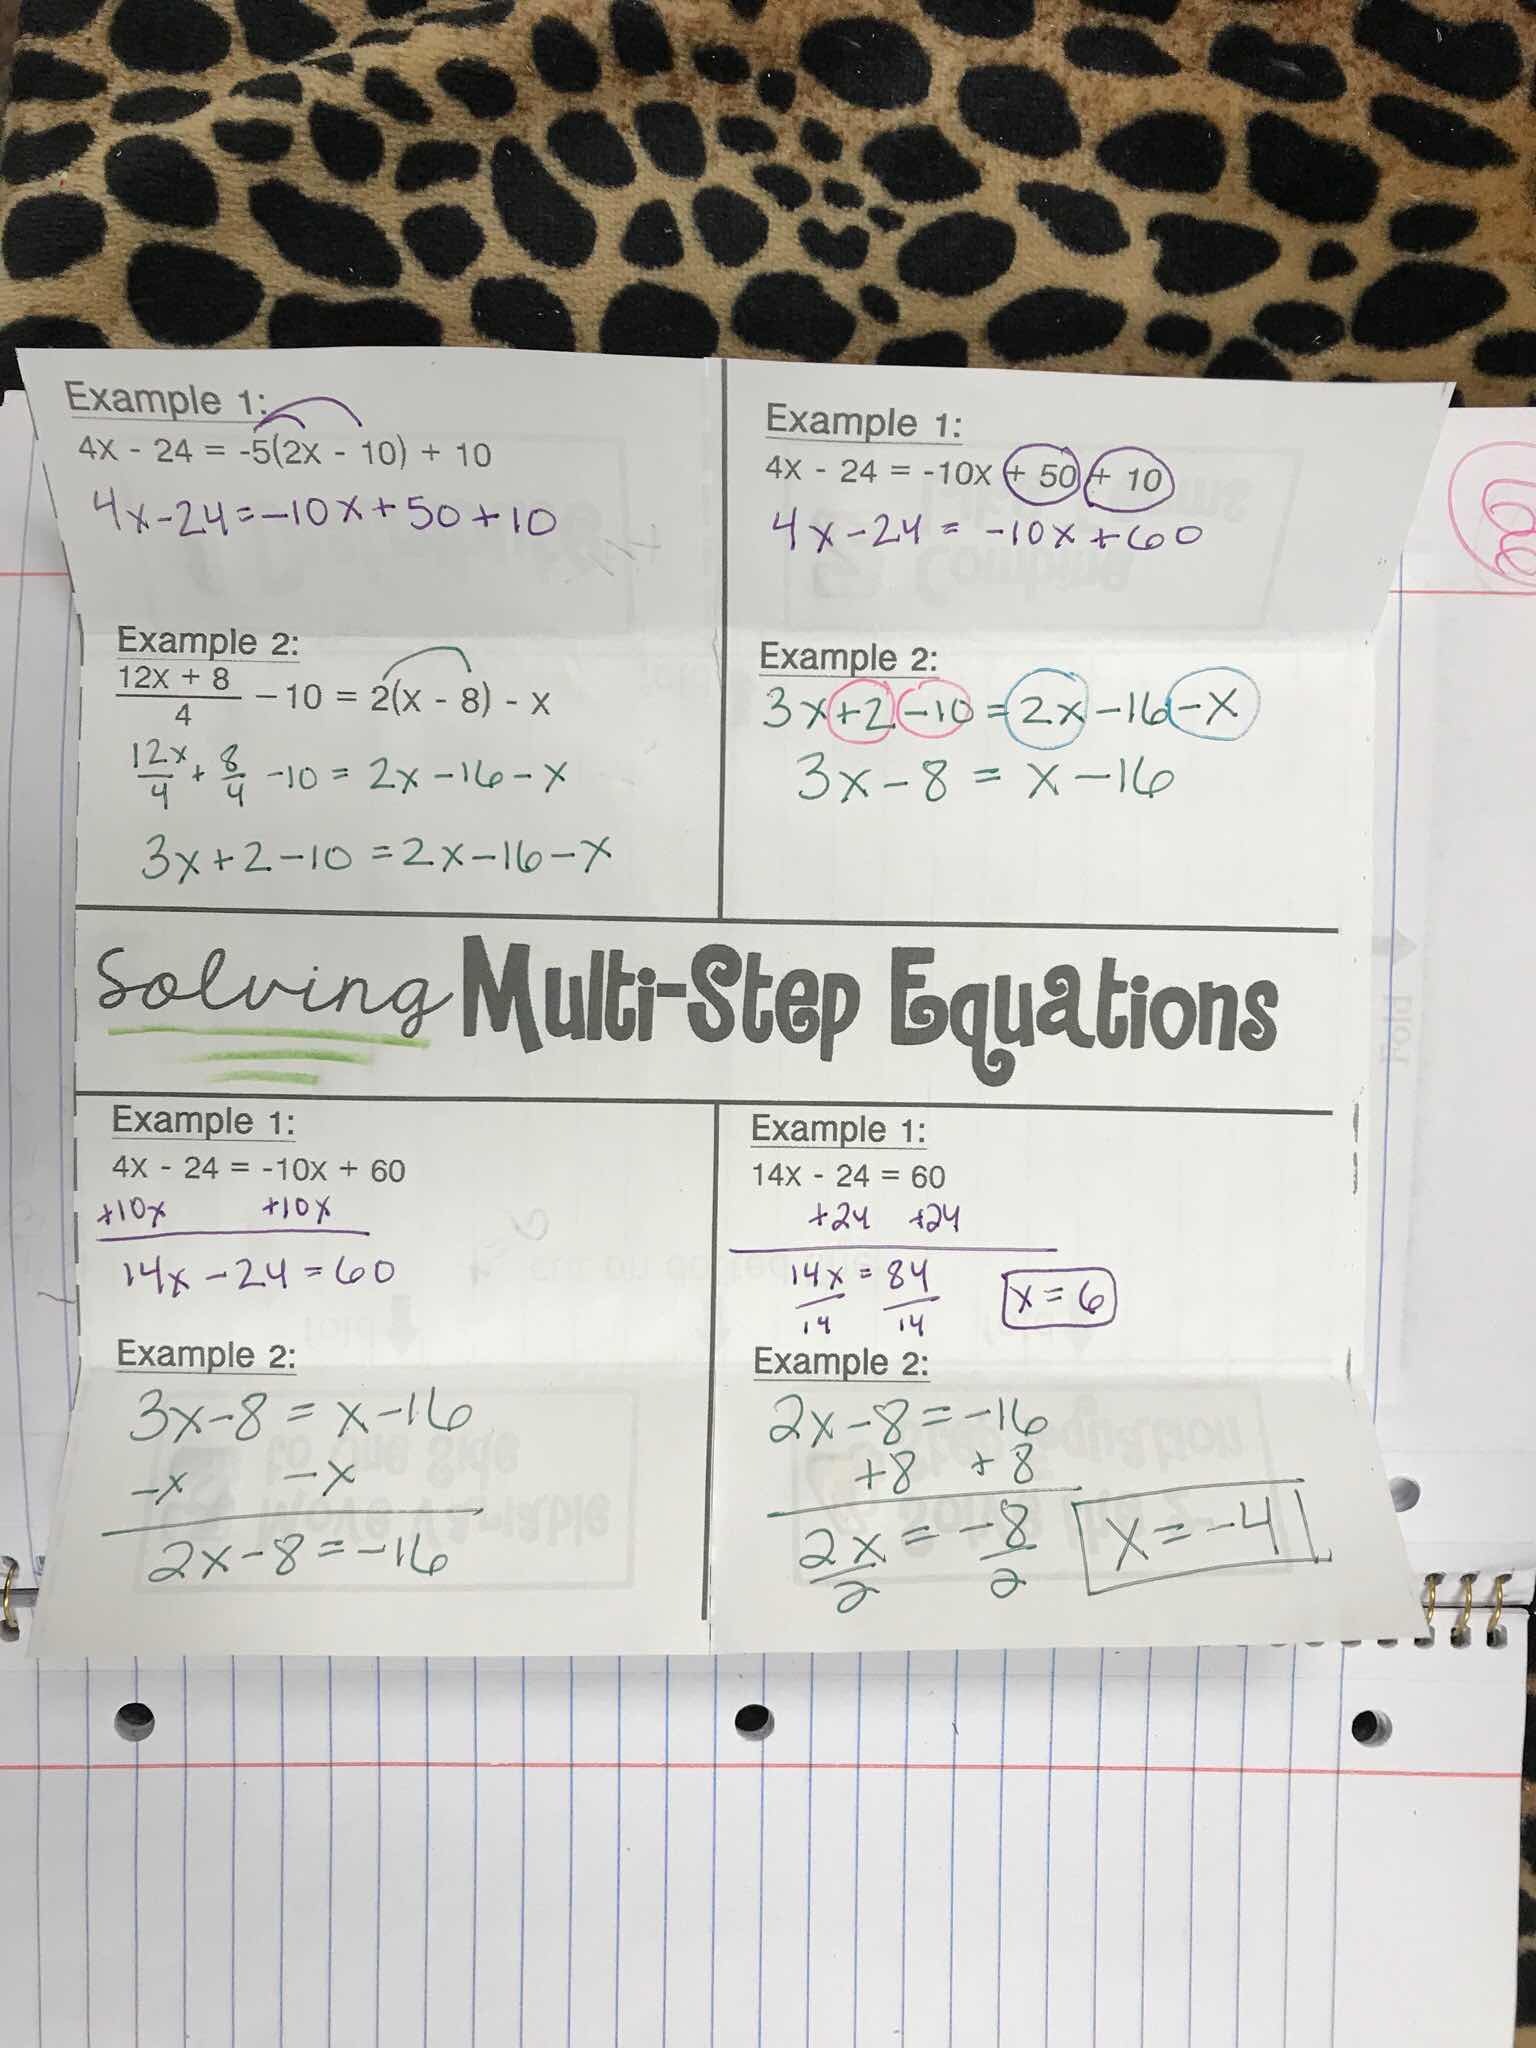 Example 1:
4x - 24 = -5(2x - 10) + 10
4x-24=-10x+50+10
Example 2:
12x + 8
4
- 10 = 2(x - 8) - x
12x/4 + 8/4 -10 = 2x-16-x
3x+2-10=2x-16-x
Example 1:
4x - 24 = -10x + 50 + 10
4x-24= -10x+60
Example 2:
3x+2-10=2x-16-x
3x-8 = x-16
Solving Multi-Step Equations
Example 1:
4x - 24 = -10x + 60
+10x +10x
14x-24=60
Example 2:
3x-8 = x-16
-x -x
2x-8=-16
Example 1:
14x - 24 = 60
+24 +24
14x = 84
14 14
x = 6
Example 2:
2x-8=-16
+8 +8
2x = -8
2 2
x=-4